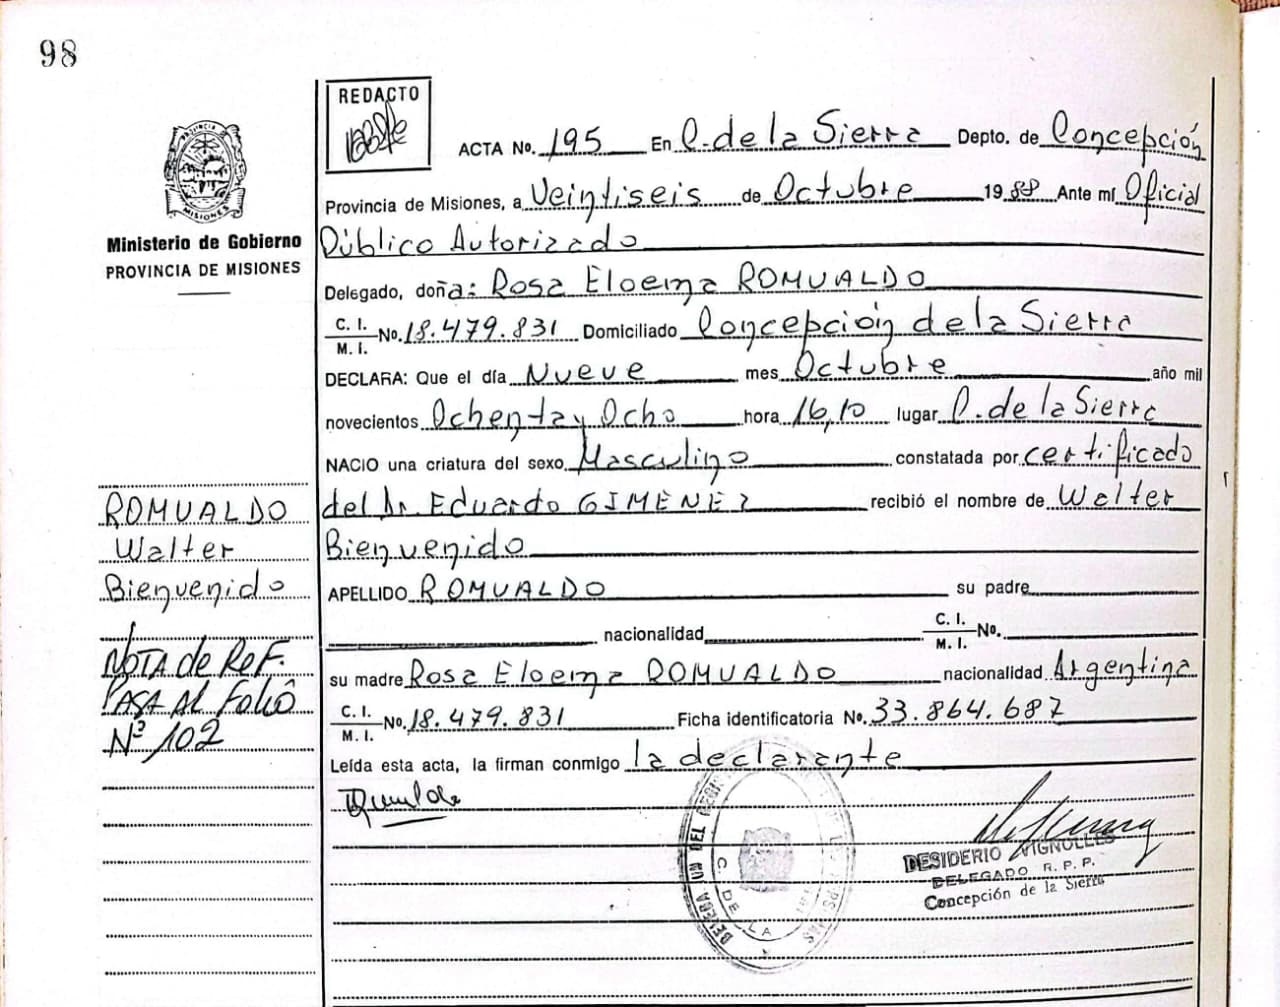 98
REDACTO
ACTA No. 195 En C. de la Sierra Depto. de Concepción
Provincia de Misiones, a Veintiseis de Octubre 1988 Ante mí Oficial
Público Autorizado
Delegado, doña: Rosa Eloema ROMUALDO
C. I.
M. I. No. 18.479.831 Domiciliado Concepción de la Sierra
DECLARA: Que el día Nueve mes Octubre año mil
novecientos Ochenta y Ocho hora 16,10 lugar C. de la Sierra
NACIO una criatura del sexo Masculino constatada por certificado
del Dr. Eduardo GIMENEZ recibió el nombre de Walter
Bienvenido
APELLIDO ROMUALDO su padre
nacionalidad C. I.
M. I. No.
su madre Rosa Eloema ROMUALDO nacionalidad Argentina
C. I.
M. I. No. 18.479.831 Ficha identificatoria No. 33.864.687
Leída esta acta, la firman conmigo la declarante
DESIDERIO VIGNOLLES
DELEGADO R. P. P.
Concepción de la Sierra
PROVINCIA DE
MISIONES
Ministerio de Gobierno
PROVINCIA DE MISIONES
ROMUALDO
Walter
Bienvenido
NOTA de REF.
PASA AL Folio
Nº 102